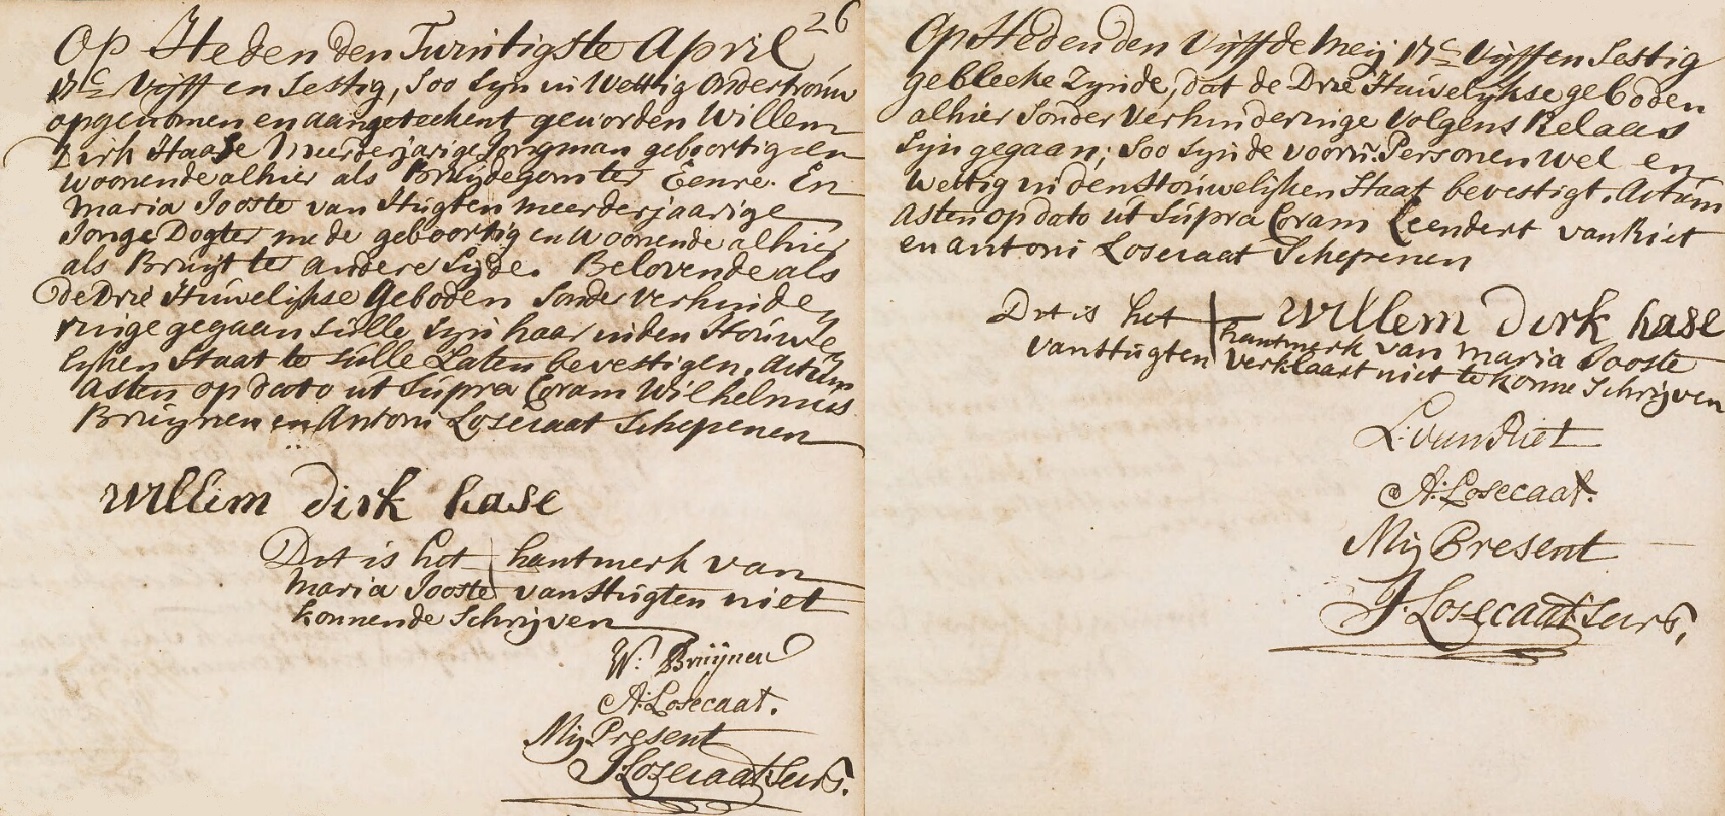 26
Op Heden den Twintigste April
17c Vijff en Sestig, Soo Syn in Wettig Ondertrouw
opgenomen en aangeteekent geworden Willem
Dirk Haase Meerderjarige Jongman geboortig en
Woonende alhier als Bruydegom ter Eenre. En
Maria Jooste van Hugten meerderjaarige
Jonge Dogter mede geboortig en Woonende alhier
als Bruyt ter andere Sijde. Belovende als
de Drie Huwelijkse Geboden Sonder Verhinde
ringe gegaan Sulle Syn haar in den Houwe
lijken Staat te Sulle Laten bevestigen. Actum
Asten op dato ut Supra Coram Wilhelmus
Bruynen en Antoni Losecaat Schepenen
Willem dirk hase
Dit is het hantmerk van
Maria Jooste van Hugten niet
konnende Schrijven
W: Bruijnen
A: Losecaat.
Mij Present
J: Losecaat Secrs.
Op Heden den Vijffde Meij 17c Vijff en Sestig
gebleeke Zynde, dat de Drie Huwelijkse geboden
alhier Sonder Verhinderinge Volgens Relaas
Syn gegaan; Soo Syn de voorn. Personen Wel en
Wettig in den Houwelijken Staat bevestigt. Actum
Asten op dato ut Supra Coram Leendert van Riet
en Antoni Losecaat Schepenen
Willem Dirk hase
Dit is het hantmerk van Maria Jooste
van Hugten Verklaart niet te konne Schrijven
L: van Riet
A: Losecaat.
Mij Present
J: Losecaat Secrs.